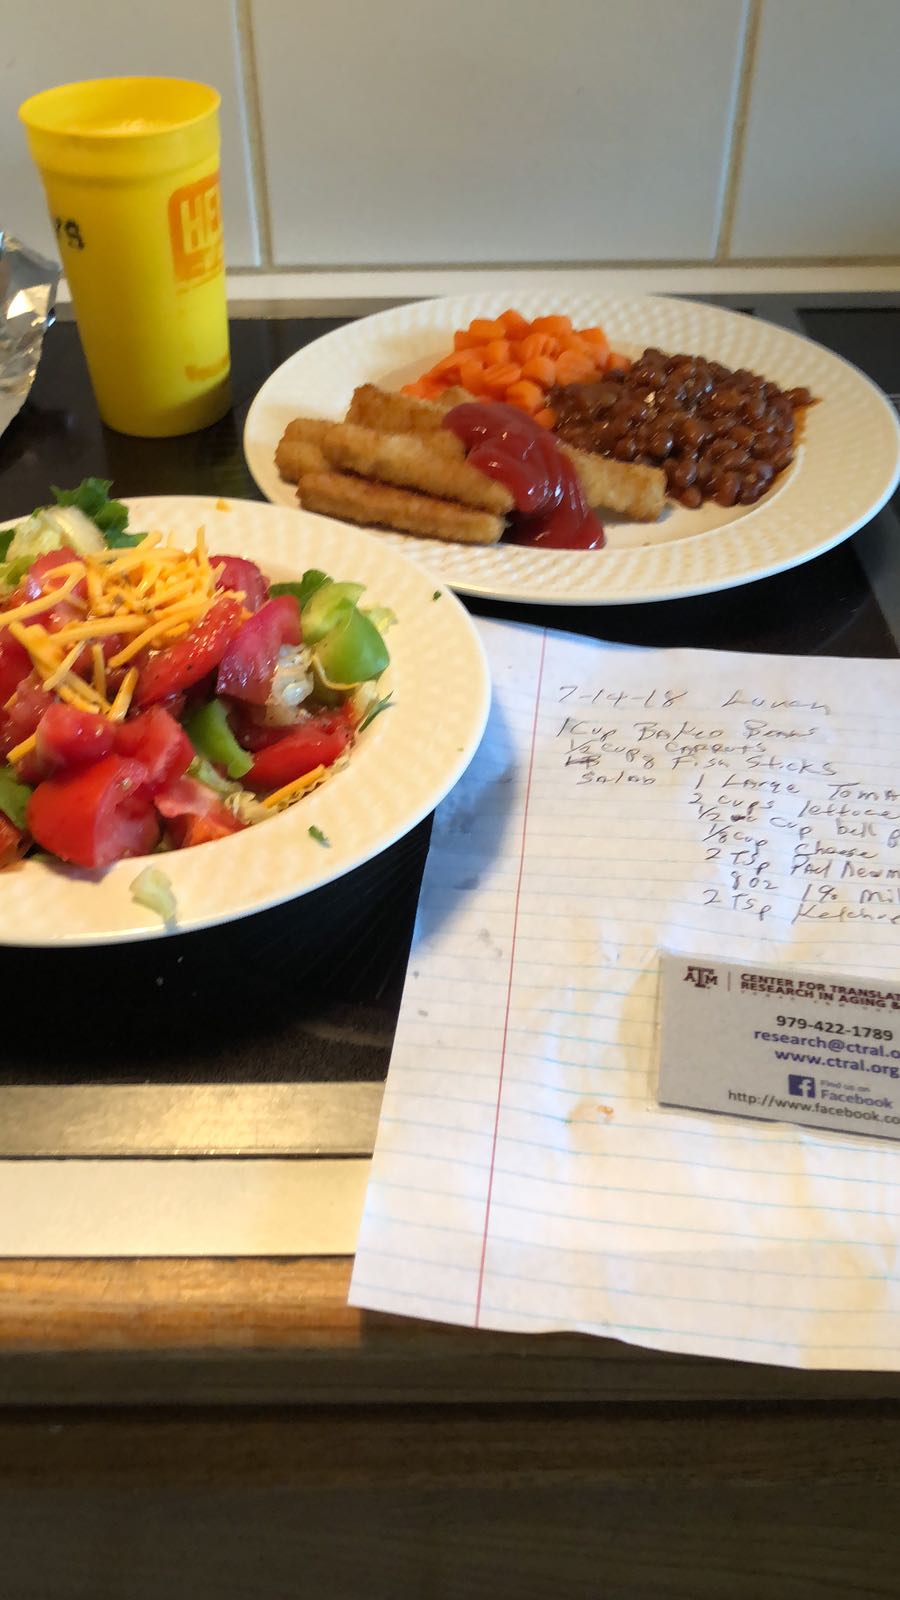 'S
HE
7-14-18 Lunch
1 Cup Baked Beans
1/2 cup carrots
8 Fish Sticks
Salad 1 Large Toma
2 cups lettuce
1/2 cup bell p
1/8 cup cheese
2 Tsp Paul Newm
8oz 1% Mil
2 Tsp Ketchu
ATM CENTER FOR TRANSLAT
RESEARCH IN AGING &
979-422-1789
research@ctral.o
www.ctral.org
f Find us on
Facebook
http://www.facebook.co